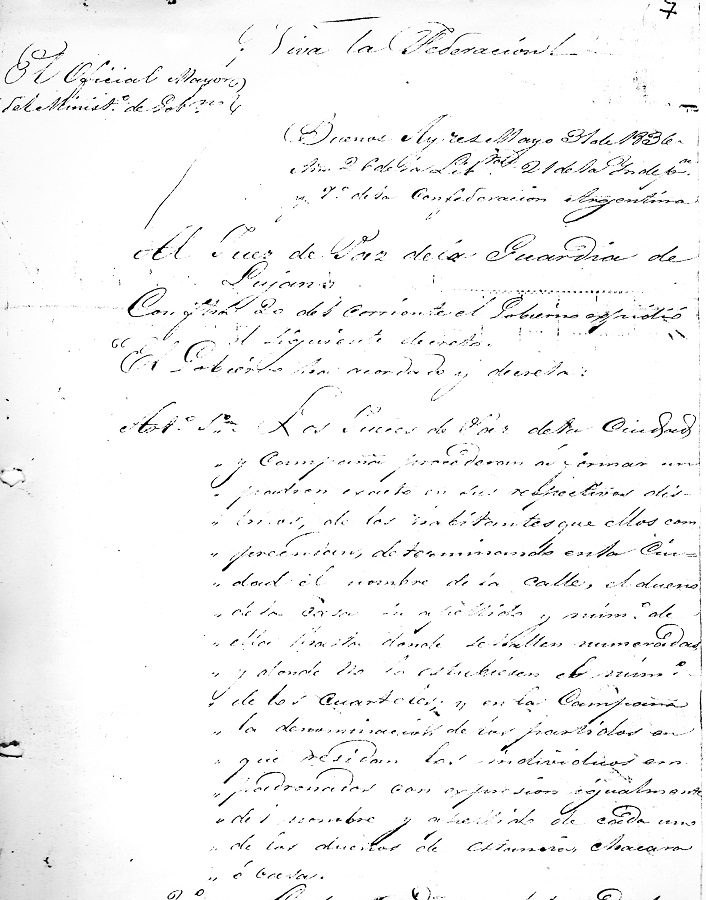 7
¡Viva la Federacion!
El Oficial Mayor
del Minist.º de Gob.no
Buenos Ayres Mayo 31 de 1836.
Año 26 de la Lib.tad 21 de la Indep.a
y 7.º de la Confederacion Argentina
Al Juez de Paz de la Guardia de
Lujan.
Con fha 20 del corriente el Gobierno expidió
el siguiente decreto.
"El Gobierno ha acordado y decreta:
Art.º 1.º Los Jueces de Paz de la Ciudad
" y Campaña procederan á formar un
" padron exacto en sus respectivos dis-
" tritos, de los habitantes que ellos com
" prendan, determinando en la Ciu-
" dad el nombre de la calle, el dueño
" de la casa su apellido y núm.º de
" ella hasta donde se hallen numeradas
" y donde no lo estubiesen el núm.º
" de los cuarteles, y en la Campaña
" la denominacion de los partidos en
" que residan los individuos em
" padronados con expresion igualmente
" del nombre y apellido de cada uno
" de los dueños de estancia, chacara
" ó casa.
2.º